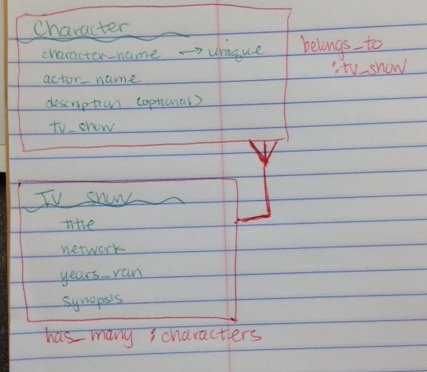 Character
character_name → unique
actor_name
description (optional)
tv_show
belongs_to
:tv_show
TV show
title
network
years_ran
synopsis
has_many :characters